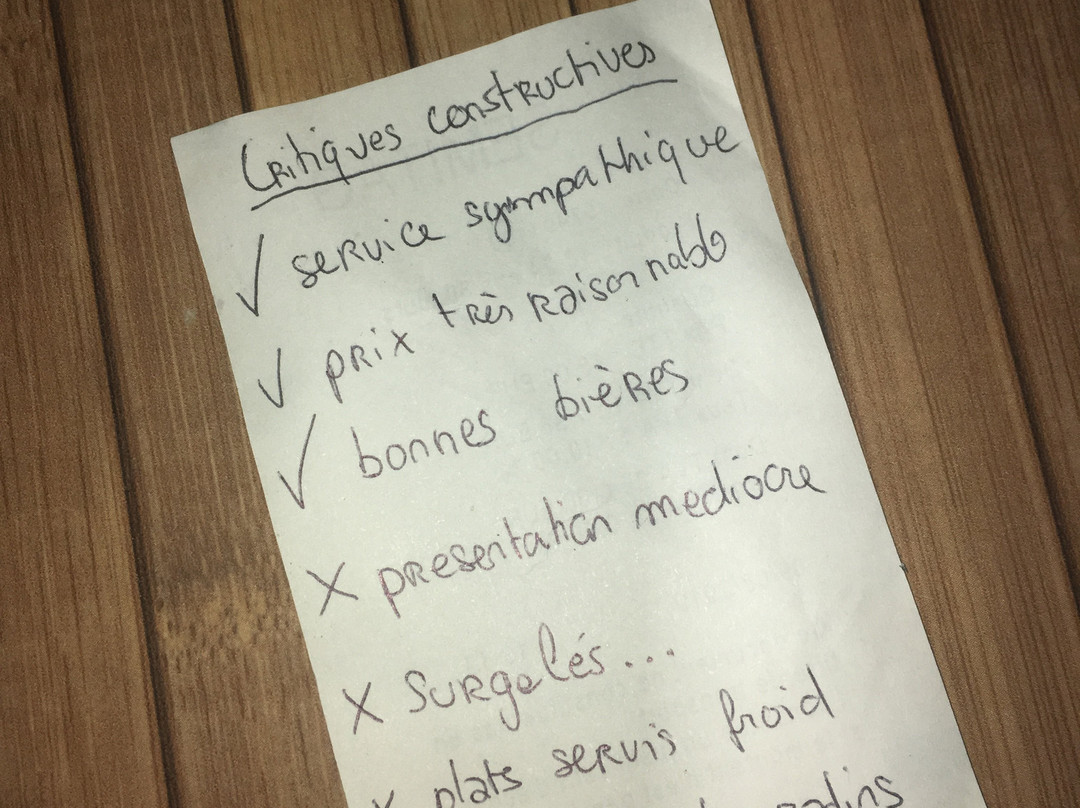 Critiques constructives
✓ service sympathique
✓ prix très raisonnable
✓ bonnes bières
X presentation mediocre
X Surgelés...
X plats servis froid
radins